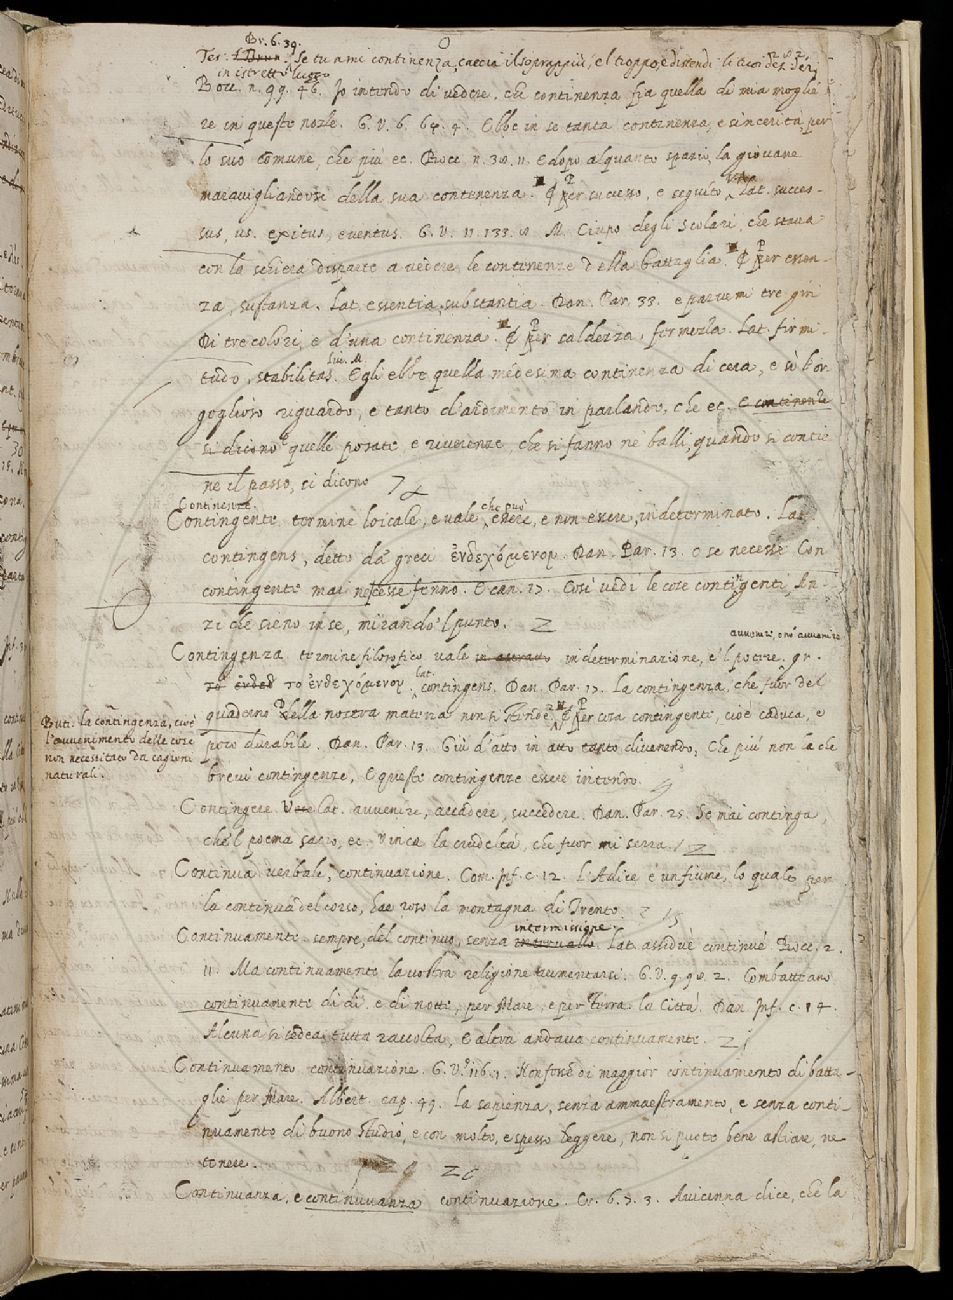 Br. 6. 39.
Tes. Se tu ami continenza, caccia il soprappiù, e'l troppo, e distendi li tuoi desideri
in istretto luogo
Bocc. n. 99. 46. Io intendo di vedere, che continenza fia quella di mia moglie
re in queste nozze. G. V. 6. 64. 4. Ebbe in se tanta continenza, e sincerità, per
lo suo comune, che più ec. Bocc. n. 38. 11. E dopo alquanto spazio, la giovane
maravigliandosi della sua continenza. ¶ Per successo, e seguito. Lat. succes-
sus, us. exitus, eventus. G. V. 11. 133. 8. M. Ciupo degli Scolari, che stava
con la schiera disparte a vedere le continenze della battaglia. ¶ Per essen-
za, sustanza. Lat. essentia, substantia. Dan. Par. 33. e parvemi tre giri
Di tre colori, e d'una continenza. ¶ Per saldezza, fermezza. Lat. firmi-
tudo, stabilitas. Liv. M. Egli ebbe quella medesima continenza di cera, e sì l'or
goglioso riguardo, e tanto d'ardimento in parlando, che ec. E continenze
si dicono quelle posate, e riverenze, che si fanno ne' balli, quando si contie
ne il passo, si dicono
Continenze.
Contingente, termine loicale, e vale, che può essere, e non essere, indeterminato. Lat.
contingens, detto da' greci ἐνδεχόμενον. Dan. Par. 13. o se necesse Con
contingente mai necesse fenno. E can. 17. Così vedi le cose contingenti, An-
zi che sieno in se, mirando'l punto.
avvenire, o no' avvenire
Contingenza termine filosofico vale in astratto indeterminazione, e'l potere. gr.
το ενδεχ το ἐνδεχόμενον, lat. contingens. Dan. Par. 17. La contingenza, che fuor del
quaderno Della nostra materia non si stende. ¶ Per cosa contingente, cioè caduca, e
poco durabile. Dan. Par. 13. Giù d'atto in atto tanto divenendo, Che più non fa che
brevi contingenze, E queste contingenze essere intendo.
Buti. la contingenza, cioè
l'avvenimento delle cose
non necessitato da cagioni
naturali.
Contingere. lat. avvenire, accadere, succedere. Dan. Par. 25. Se mai continga,
che'l poema sacro, ec. Vinca la crudeltà, che fuor mi serra.
Continua verbale, continuazione. Com. Inf. c. 12. L'Adice è un fiume, lo quale per
la continua del corso, hae roso la montagna di Trento.
Continuamente. sempre, del continuo, senza intervallo intermissione. Lat. assiduè continuè. Bocc. 2.
11. Ma continuamente la vostra religione aumentarsi. G. V. 9. 98. 2. Combatteano
continuamente di dì, e di notte, per Mare, e per Terra la Città. Dan. Inf. c. 14.
Alcuna si sedea tutta raccolta, E altra andava continuamente.
Continuamento continuazione. G. V. 116. 1. Non fone di maggior continuamento di batta-
glie per Mare. Albert. cap. 49. La sapienza, senza ammaestramento, e senza conti-
nuamento di buono studio, e con molto, e spesso leggere, non si puote bene avere, ne
tenere.
Continuanza, e continuvanza continuazione. Cr. 6. 3. 3. Avicenna dice, che la